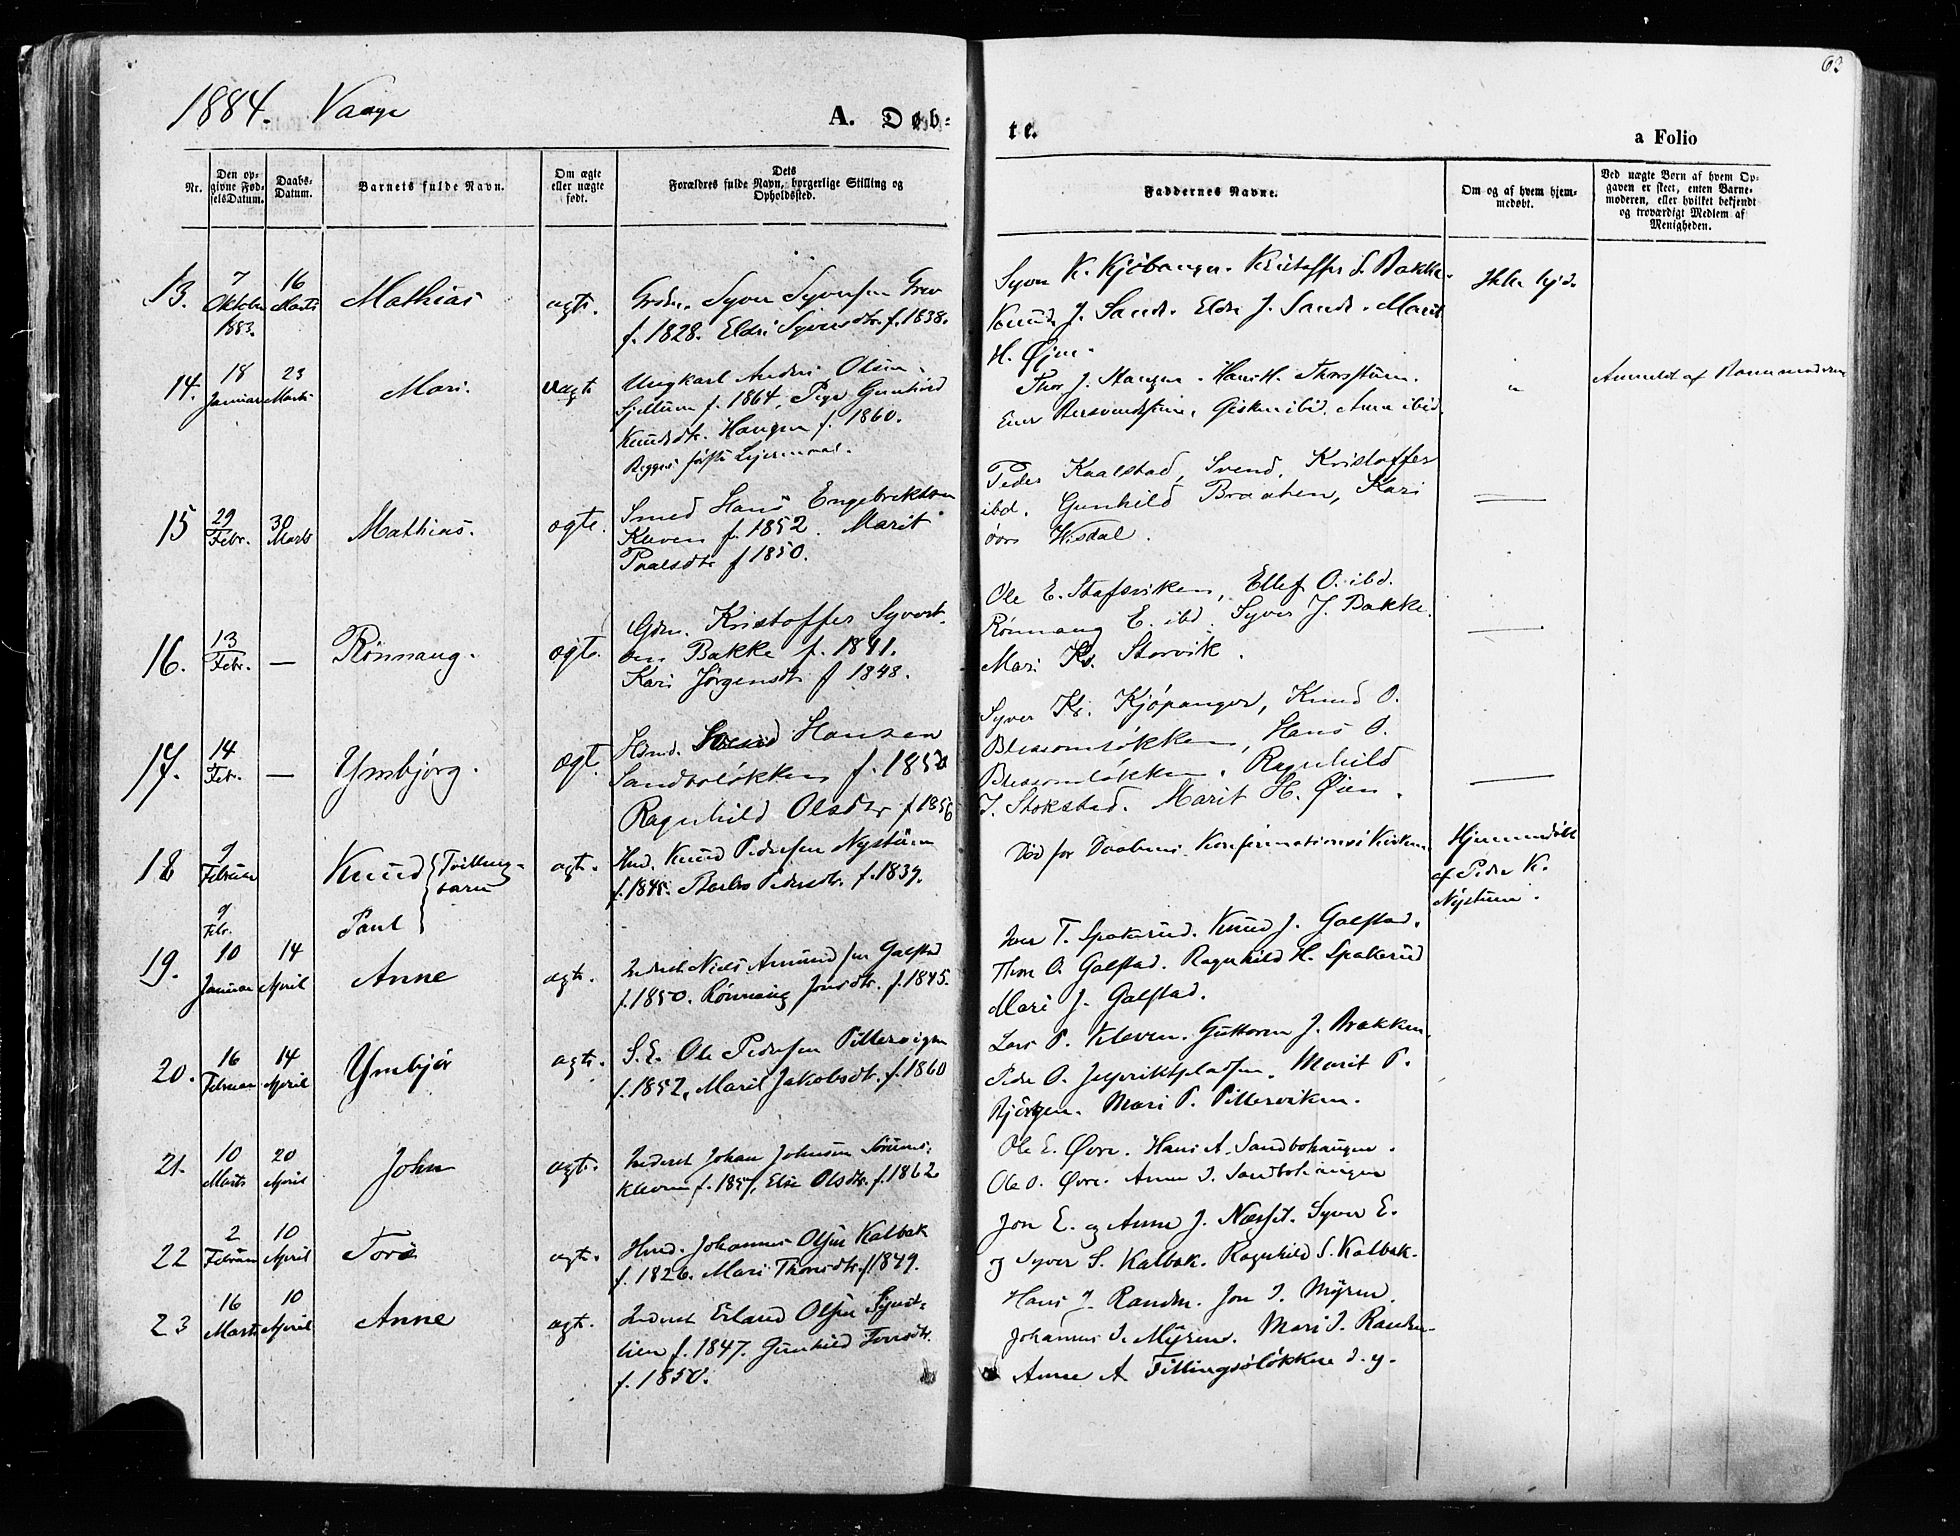 63
1884. Vaage
A. Døb-
te.
a Folio
Nr.
Den op-
givne Fød-
selsDatum.
Daabs-
Datum.
Barnets fulde Navn.
Om ægte
eller uægte
født.
Dets
Forældres fulde Navn, borgerlige Stilling og
Opholdssted.
Faddernes Navne.
Om og af hvem hjem-
medøbt.
Ved uægte Børn af hvem Op-
gaven er skeet, enten Barne-
moderen, eller hvilket bekjendt
og troværdigt Medlem af
Menigheden.
13.
7
Oktober
1883.
16
Marts
Mathias
ægte.
Syver Syversen
f. 1828. Eldri Syversdtr. f. 1838.
Syver K. Kjøbanger. Kristoffer S. Bakke.
Knud J. Sande. Eldri J. Sande. Marit
H. Øjen.
Ikke hjd.
14.
18
Januar
23
Marts
Mari.
uægte
Ungkarl Anders Olsen
f. 1864, Pige Gunhild
Knudsdtr. Haugen f. 1860.
Begges første Lejermaal.
Thor J. Hangen. Hans H.
Anne ibid.
"
Anmeldt af Barnemoderen
15
29
Febr.
30
Marts
Mathias.
ægte.
Smed Hans Engebriktsen
Kleven f. 1852. Marit
Paalsdtr f 1850.
Peder Kaalstad, Svend, Kristoffer
ibd. Gunhild Braaten, Kari
Hisdal.
—
16.
13
Febr.
—
Rønnaug.
ægte.
Gdm. Kristoffer Syvert-
sen Bakke f. 1841.
Kari Jørgensdtr f 1848.
Ole E. Stafsviken, Ellef O. ibd.
Rønnaug E. ibd. Syver J. Bakke.
Mari Kr. Storvik.
—
17.
14
Febr.
—
Ymbjørg.
Ægte.
Svend Hansen
Sandboløkken f. 1850
Ragnhild Olsdtr f 1856
Syver Kr. Kjøpanger, Knud O.
Blessomløkken, Hans O.
Blessomløkken. Ragnhild
J. Stokstad. Marit H. Øien.
—
18
9
Februar
Knud
Tvillinge-
barn
ægte.
Knud Pedersen Nystuen
f. 1845. Barbro Pedersdtr. f. 1839.
Død før Daabens Konfirmation i Kirken
Hjemmedøbt
af Peder K.
Nystuen.
9
Febr.
Paul
19.
10
Januar
14
April
Anne
ægte.
Inderst Niels Amundsen Galstad
f. 1850. Rønnaug Jonsdtr. f. 1845.
Iver T. Spakrud. Knud J. Galstad.
Thor O. Galstad. Ragnhild H. Spakrud
Mari J. Galstad.
20.
16
Februar
14
April
Ymbjør
ægte.
S. E. Ole Pedersen Pillarvigen
f. 1852, Marit Jakobsdtr. f. 1860
Lars P. Kleven. Guttorm J. Brakken.
Peder O. Marit P.
Bjørgen. Mari P. Pillerviken.
21.
10
Marts
20
April
John
ægte.
Inderst Johan Johnsen Sørums-
kleven f. 1857, Else Olsdtr. f. 1862
Ole E. Øvre. Hans A. Sandbohaugen.
Ole O. Øvre. Anne I. Sandbohaugen
22
2
Februar
10
April
Tore
ægte.
Hmd. Johannes Olsen Kalbak
f. 1826. Mari Thoresdtr. f. 1849.
Jon E. og Anne J. Næsset. Syver E.
og Syver S. Kalbak. Ragnhild S. Kalbak.
23
16
Marts
10
April
Anne
ægte.
Inderst Erland Olsen
lien f. 1847. Gunhild
f. 1850.
Hans J. Randen. Jon J. Myren.
Johannes J. Myren. Mari J. Randen
Anne A Tillingsløkken d. y.